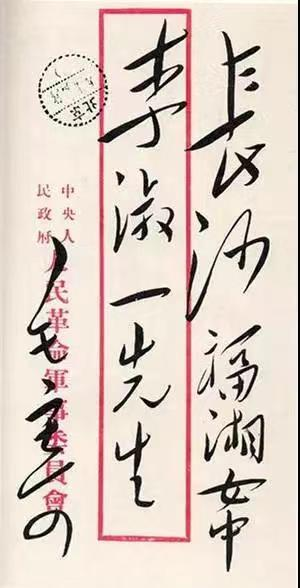 長沙福湘女中
李淑一先生
中央人
民政府
人民革命軍事委員會
毛寄
北京